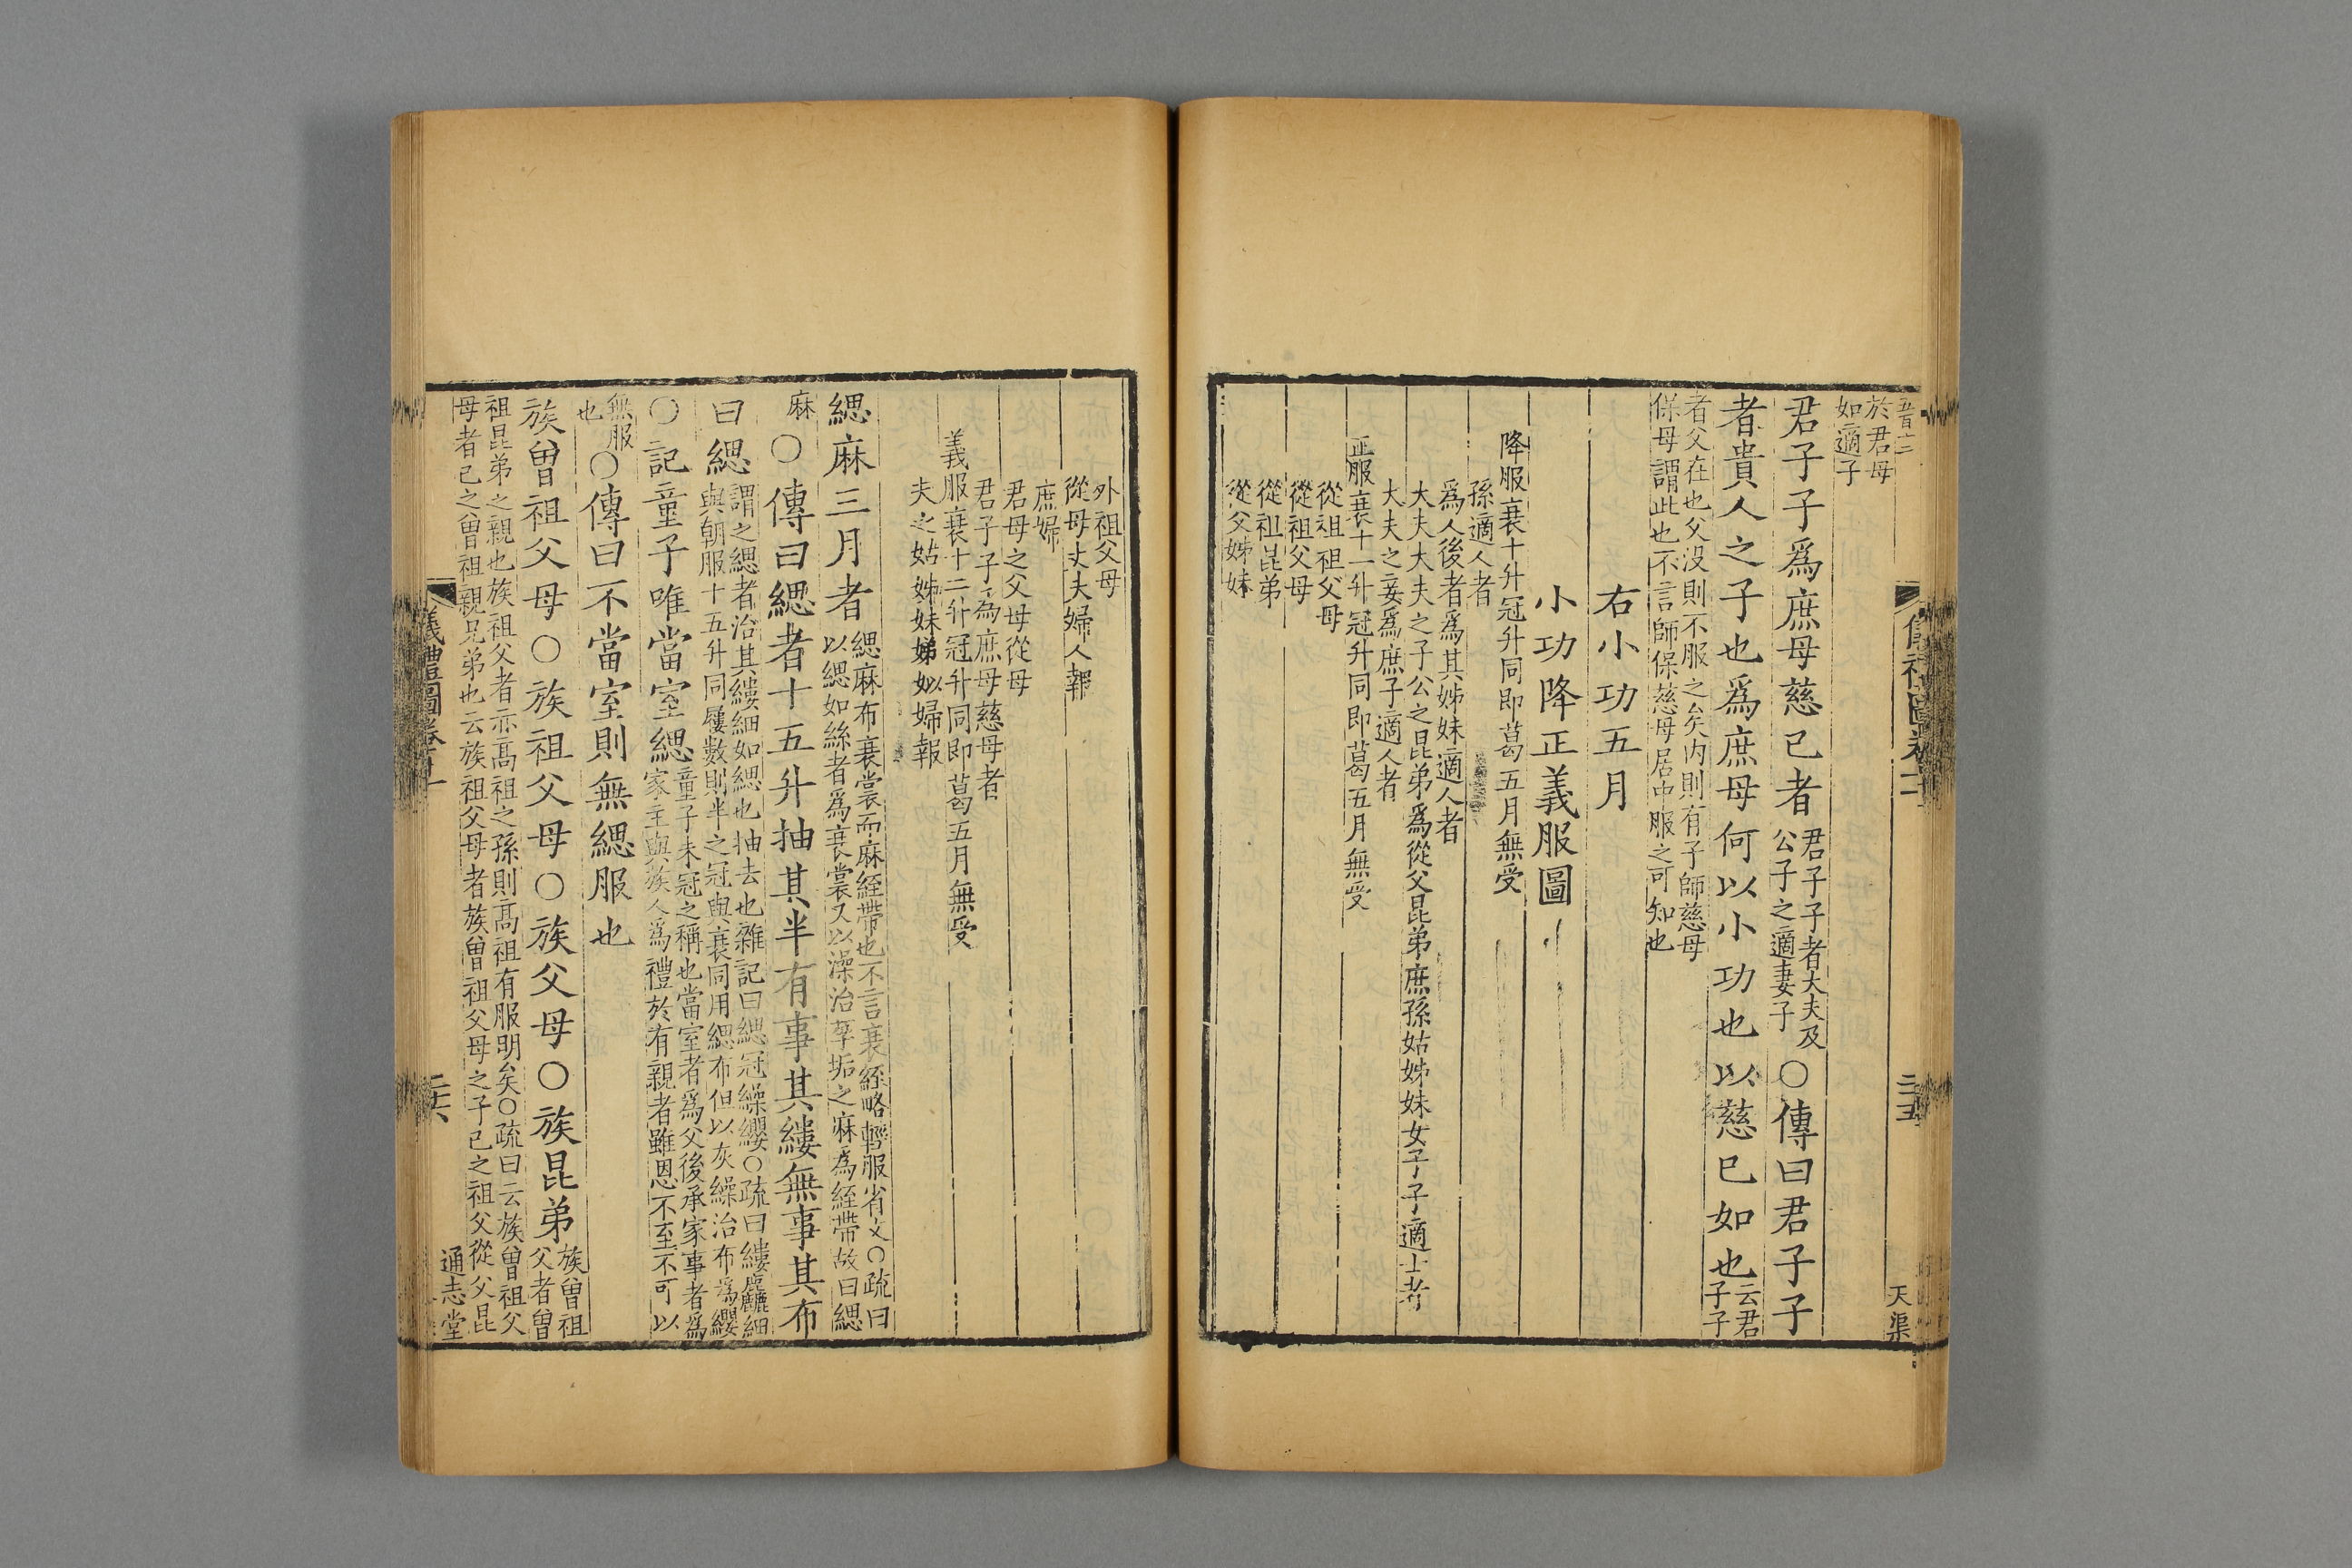 於君母
如適子
君子子爲庶母慈已者君子子者大夫及
公子之適妻子○傳曰君子子
者貴人之子也爲庶母何以小功也以慈已加也云君
子子
者父在也父没則不服之矣内則有子師慈母
保母謂此也不言師保慈母居中服之可知也
右小功五月
小功降正義服圖
降服衰十升冠升同即葛五月無受
孫適人者
爲人後者爲其姊妹適人者
大夫大夫之子公之昆弟爲從父昆弟庶孫姑姊妹女子子適士者
大夫之妾爲庶子適人者
正服衰十一升冠升同即葛五月無受
從祖祖父母
從祖父母
從祖昆弟
從父姊妹
天渠
外祖父母
從母丈夫婦人報
庶婦
君母之父母從母
君子子爲庶母慈母者
義服衰十二升冠升同即葛五月無受
夫之姑姊妹娣姒婦報
緦麻三月者緦麻布衰裳而麻絰帶也不言衰絰略輕服省文○疏曰
以緦如絲者爲衰裳又以澡治莩垢之麻爲絰帶故曰緦
麻○傳曰緦者十五升抽其半有事其縷無事其布
曰緦謂之緦者治其縷細如緦也抽去也雜記曰緦冠繰纓○疏曰縷麤細
與朝服十五升同屨數則半之冠與衰同用緦布但以灰繰治布爲纓
○記童子唯當室緦童子未冠之稱也當室者爲父後承家事者爲
家主與族人爲禮於有親者雖恩不至不可以
無服
也○傳曰不當室則無緦服也
族曾祖父母○族祖父母○族父母○族昆弟族曾祖
父者曾
祖昆弟之親也族祖父者亦高祖之孫則高祖有服明矣○疏曰云族曾祖父
母者已之曾祖親兄弟也云族祖父母者族曾祖父母之子已之祖父從父昆
儀禮圖卷十一
通志堂